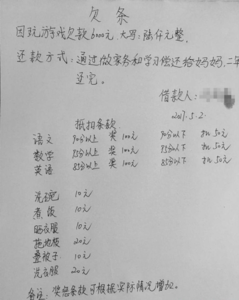 欠条
因玩游戏欠款6000元 大写：陆仟元整。
还款方式：通过做家务和学习偿还给奶奶，二年
还完。
借款人：
2017.5.2.
抵扣条款
语文 90分以上 奖100元 90分以下 扣50元
数学 85分以上 奖100元 85分以下 扣50元
英语 85分以上 奖100元 85分以下 扣50元
洗碗 10元
煮饭 10元
晒衣服 10元
拖地板 20元
叠被子 10元
洗衣服 20元
备注：奖惩条款可根据实际情况增加。